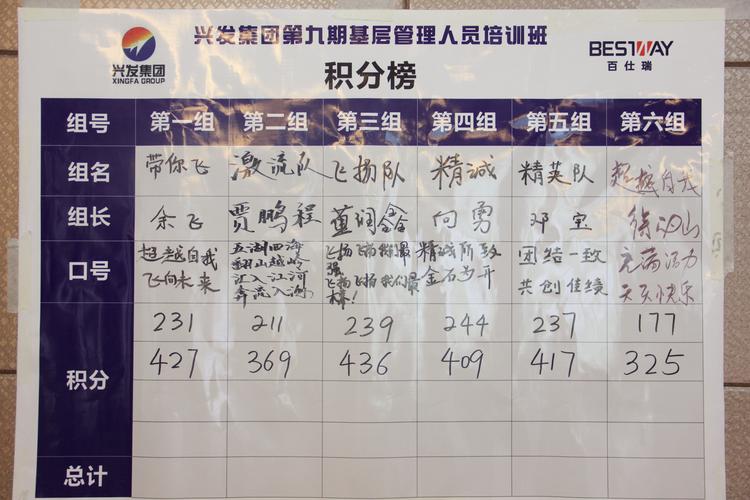 兴发集团
XINGFA GROUP
兴发集团第九期基层管理人员培训班
BESTWAY
百仕瑞
积分榜
组号 第一组 第二组 第三组 第四组 第五组 第六组
组名 带你飞 激流队 飞扬队 精诚 精英队 超越自我
组长 余飞 贾鹏程 向勇 邓宝
口号 超越自我 五湖四海 飞扬飞扬你最 精诚所致 团结一致 充满活力
飞向未来 翻山越岭 强 金石为开 共创佳绩 天天快乐
汇入江河 飞扬飞扬我们最
奔流入海 棒!
231 211 239 244 237 177
积分 427 369 436 409 417 325
总计